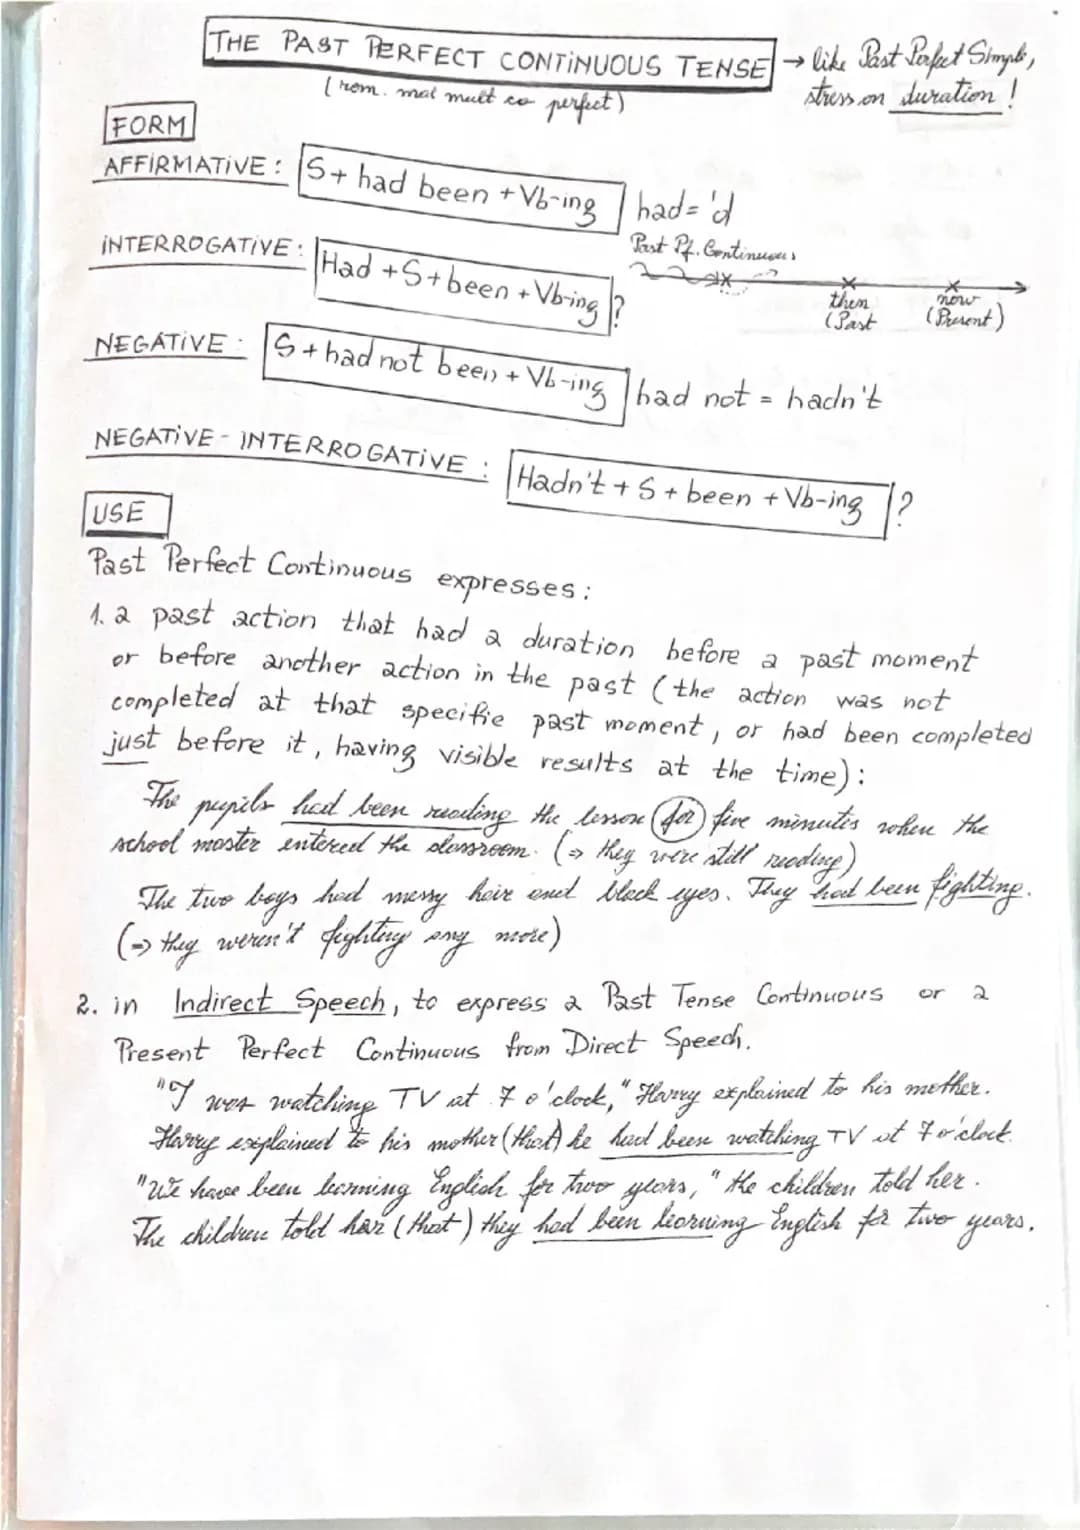 THE PAST PERFECT CONTINUOUS TENSE → like Past Perfect Simple,
(rom. mai mult ca perfect) stress on duration!
FORM
AFFIRMATIVE: S + had been + Vb-ing had = 'd
INTERROGATIVE: Had + S + been + Vb-ing? Past Pf. Continuous
then now
(Past (Present)
NEGATIVE: S + had not been + Vb-ing had not = hadn't
NEGATIVE-INTERROGATIVE: Hadn't + S + been + Vb-ing?
USE
Past Perfect Continuous expresses:
1. a past action that had a duration before a past moment
or before another action in the past (the action was not
completed at that specific past moment, or had been completed
just before it, having visible results at the time):
The pupils had been reading the lesson for five minutes when the
school master entered the classroom. (=> they were still reading)
The two boys had messy hair and black eyes. They had been fighting.
(=> they weren't fighting any more)
2. in Indirect Speech, to express a Past Tense Continuous or a
Present Perfect Continuous from Direct Speech.
"I was watching TV at 7 o'clock," Harry explained to his mother.
Harry explained to his mother (that) he had been watching TV at 7 o'clock.
"We have been learning English for two years," the children told her.
The children told her (that) they had been learning English for two years.